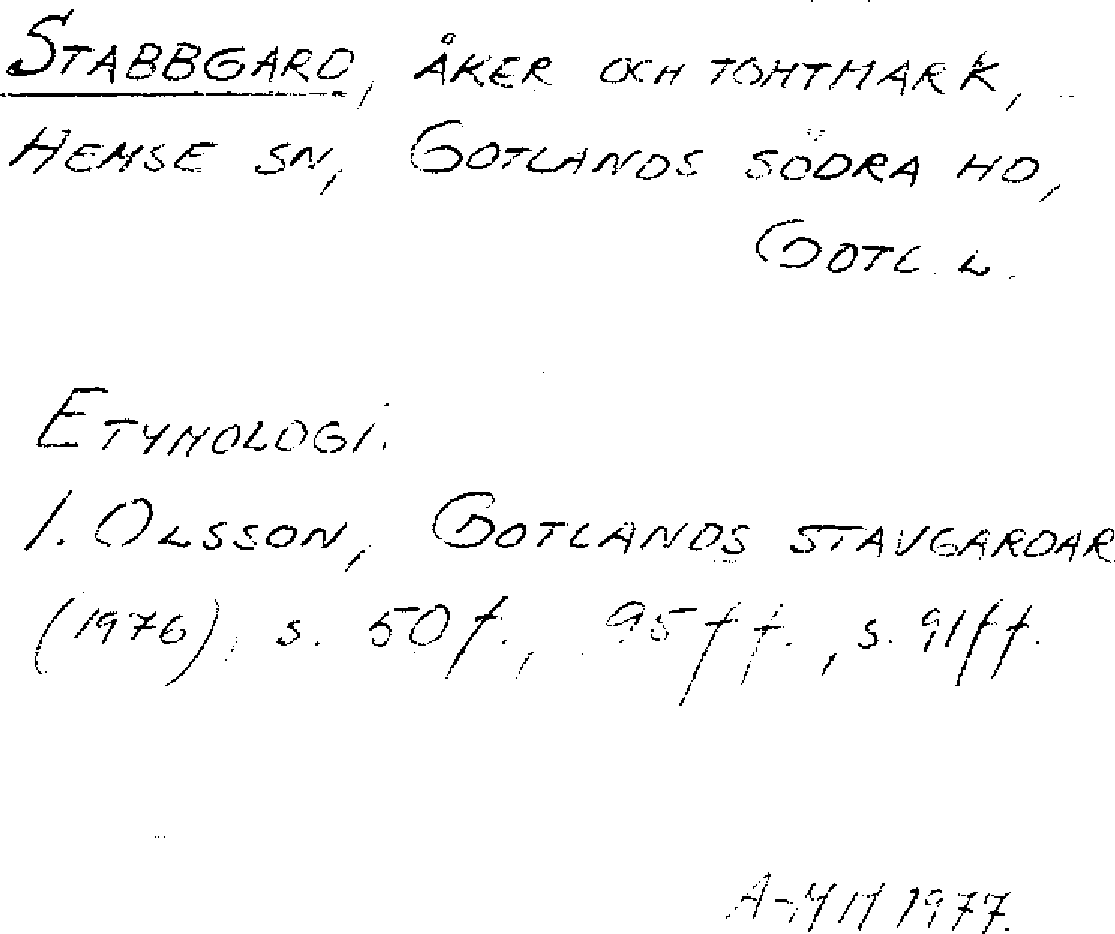 STABBGARD, ÅKER OCH TOMTMARK,
HEMSE SN, GOTLANDS SÖDRA HD,
GOTL. L.
ETYMOLOGI.
I. OLSSON, GOTLANDS STAVGARDAR
(1976), s. 50 f., 95 ff., s. 91 ff.
A-MH 1977.